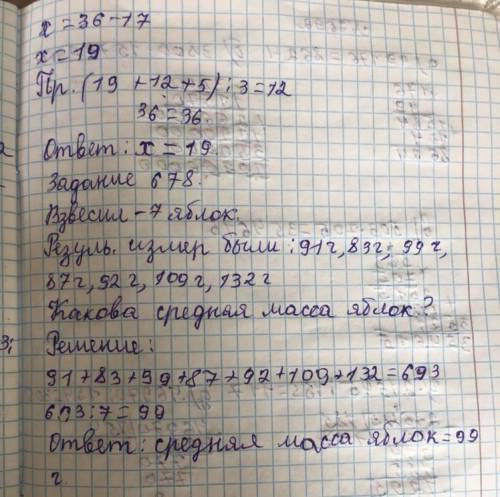 x = 36 - 17
x = 19
Пр. (19 + 12 + 5) : 3 = 12
36 = 36.
Ответ: x = 19.
Задание 678.
Взвесил - 7 яблок.
Резуль. измер были: 91 г, 83 г, 99 г,
87 г, 92 г, 109 г, 132 г
Какова средная масса яблок?
Решение:
91 + 83 + 99 + 87 + 92 + 109 + 132 = 693
693 : 7 = 99
Ответ: средняя масса яблок = 99
г.